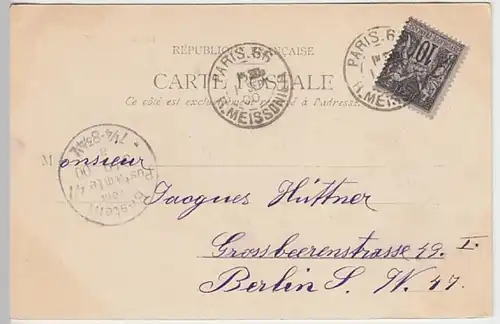 RÉPUBLIQUE FRANÇAISE
CARTE POSTALE
Ce côté est exclusivement réservé à l'adresse.
PARIS. 66
R. MEISSONIER
PARIS. 66
R. MEISSONIER
10
Bestellt
vom
Postamte 47
7¼-8¾V.
00
Monsieur
Jacques Hüttner
Grossbeerenstrasse 49. I.
Berlin S. W. 47.